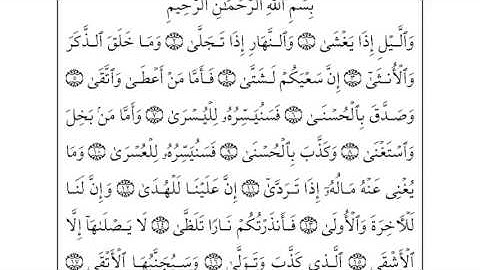 بِسْمِ ٱللَّهِ ٱلرَّحْمَـٰنِ ٱلرَّحِيمِ
وَٱلَّيْلِ إِذَا يَغْشَىٰ ۝١ وَٱلنَّهَارِ إِذَا تَجَلَّىٰ ۝٢ وَمَا خَلَقَ ٱلذَّكَرَ
وَٱلْأُنثَىٰٓ ۝٣ إِنَّ سَعْيَكُمْ لَشَتَّىٰ ۝٤ فَأَمَّا مَنْ أَعْطَىٰ وَٱتَّقَىٰ ۝٥
وَصَدَّقَ بِٱلْحُسْنَىٰ ۝٦ فَسَنُيَسِّرُهُۥ لِلْيُسْرَىٰ ۝٧ وَأَمَّا مَنۢ بَخِلَ
وَٱسْتَغْنَىٰ ۝٨ وَكَذَّبَ بِٱلْحُسْنَىٰ ۝٩ فَسَنُيَسِّرُهُۥ لِلْعُسْرَىٰ ۝١٠ وَمَا
يُغْنِى عَنْهُ مَالُهُۥٓ إِذَا تَرَدَّىٰٓ ۝١١ إِنَّ عَلَيْنَا لَلْهُدَىٰ ۝١٢ وَإِنَّ لَنَا
لَلْـَٔاخِرَةَ وَٱلْأُولَىٰ ۝١٣ فَأَنذَرْتُكُمْ نَارًا تَلَظَّىٰ ۝١٤ لَا يَصْلَىٰهَآ إِلَّا
ٱلْأَشْقَى ۝١٥ ٱلَّذِى كَذَّبَ وَتَوَلَّىٰ ۝١٦ وَسَيُجَنَّبُهَا ٱلْأَتْقَى ۝١٧